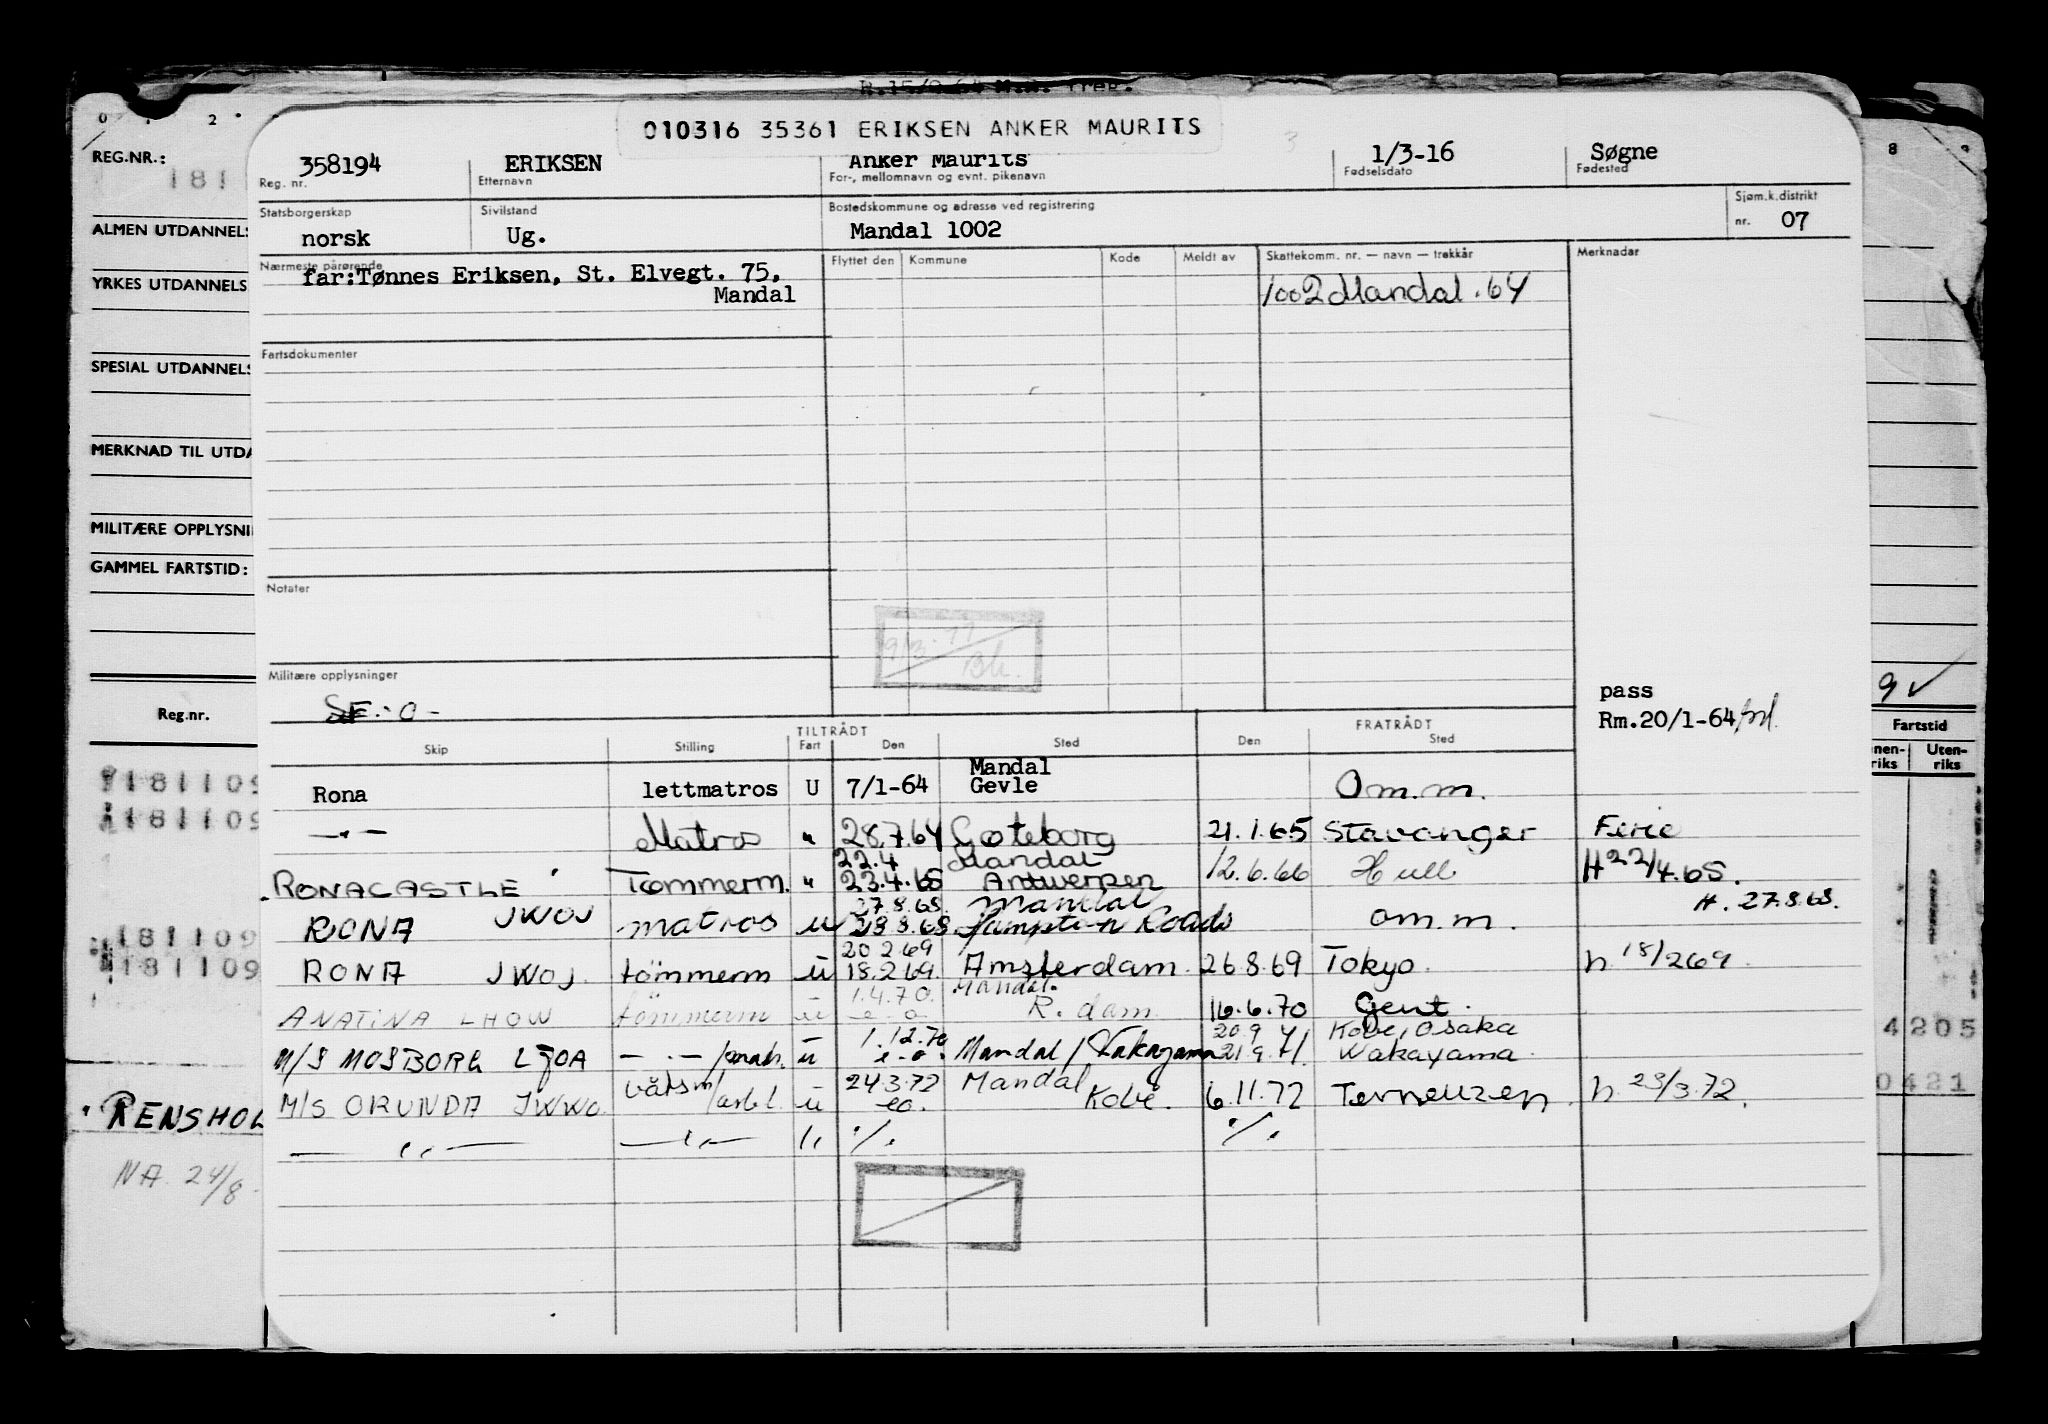 010316 35361 ERIKSEN ANKER MAURITS
358194 ERIKSEN Anker Maurits 1/3-16 Søgne
Reg. nr. Etternavn For-, mellomnavn og evnt. pikenavn Fødselsdato Fødested
Statsborgerskap Sivilstand Bostedskommune og adresse ved registrering Sjøm.k.distrikt
norsk Ug. Mandal 1002 nr. 07
Nærmeste pårørende Flyttet den Kommune Kode Meldt av Skattekomm. nr. — navn — trekkår Merknader
far:Tønnes Eriksen, St. Elvegt. 75,
Mandal
1002 Mandal .64
Fartsdokumenter
Notater
Militære opplysninger
SF.-0-
pass
Rm.20/1-64
TILTRÅDT FRATRÅDT
Skip Stilling Fart Den Sted Den Sted
Mandal
Rona lettmatros U 7/1-64 Gevle Om.m.
—"— Matros " 28.7.64 Gøteborg 21.1.65 Stavanger Ferie
22.4 Mandal
RONACASTLE Tømmerm. " 23.4.65 Antwerpen 12.6.66 Hull H 22/4.65.
27.8.68. Mandal H. 27.8.68.
RONA JWOJ matros u 28.8.68. Hampton Roads om.m.
20 2 69
RONA JWOJ tömmerm u 18.2.69. Amsterdam 26.8.69 Tokyo. h 18/2 69.
1.4.70. Mandal.
ANATINA LHOW tömmerm u e-o- R.dam 16.6.70 Gent.
1.12.70 20 9 Kobe, Osaka
M/S MOSBORG LJOA — " — u e-o. Mandal / Wakayama 21 9.71. Wakayama
M/S ORUNDA JWWO båtsm u 24 3.72 eo. Mandal Kobe. 6.11.72 Terneuzen. h 23/3.72.
— " — — " — " ./. ./.
REG.NR.:
181
ALMEN UTDANNELS
YRKES UTDANNELS
SPESIAL UTDANNELS
MERKNAD TIL UTDA
MILITÆRE OPPLYSNI
GAMMEL FARTSTID:
Reg.nr.
181109
181109
181109
181109
RENSHOL
NA. 24/8.
8
9 ✓
Fartstid
nen-riks Uten-riks
4205
0421